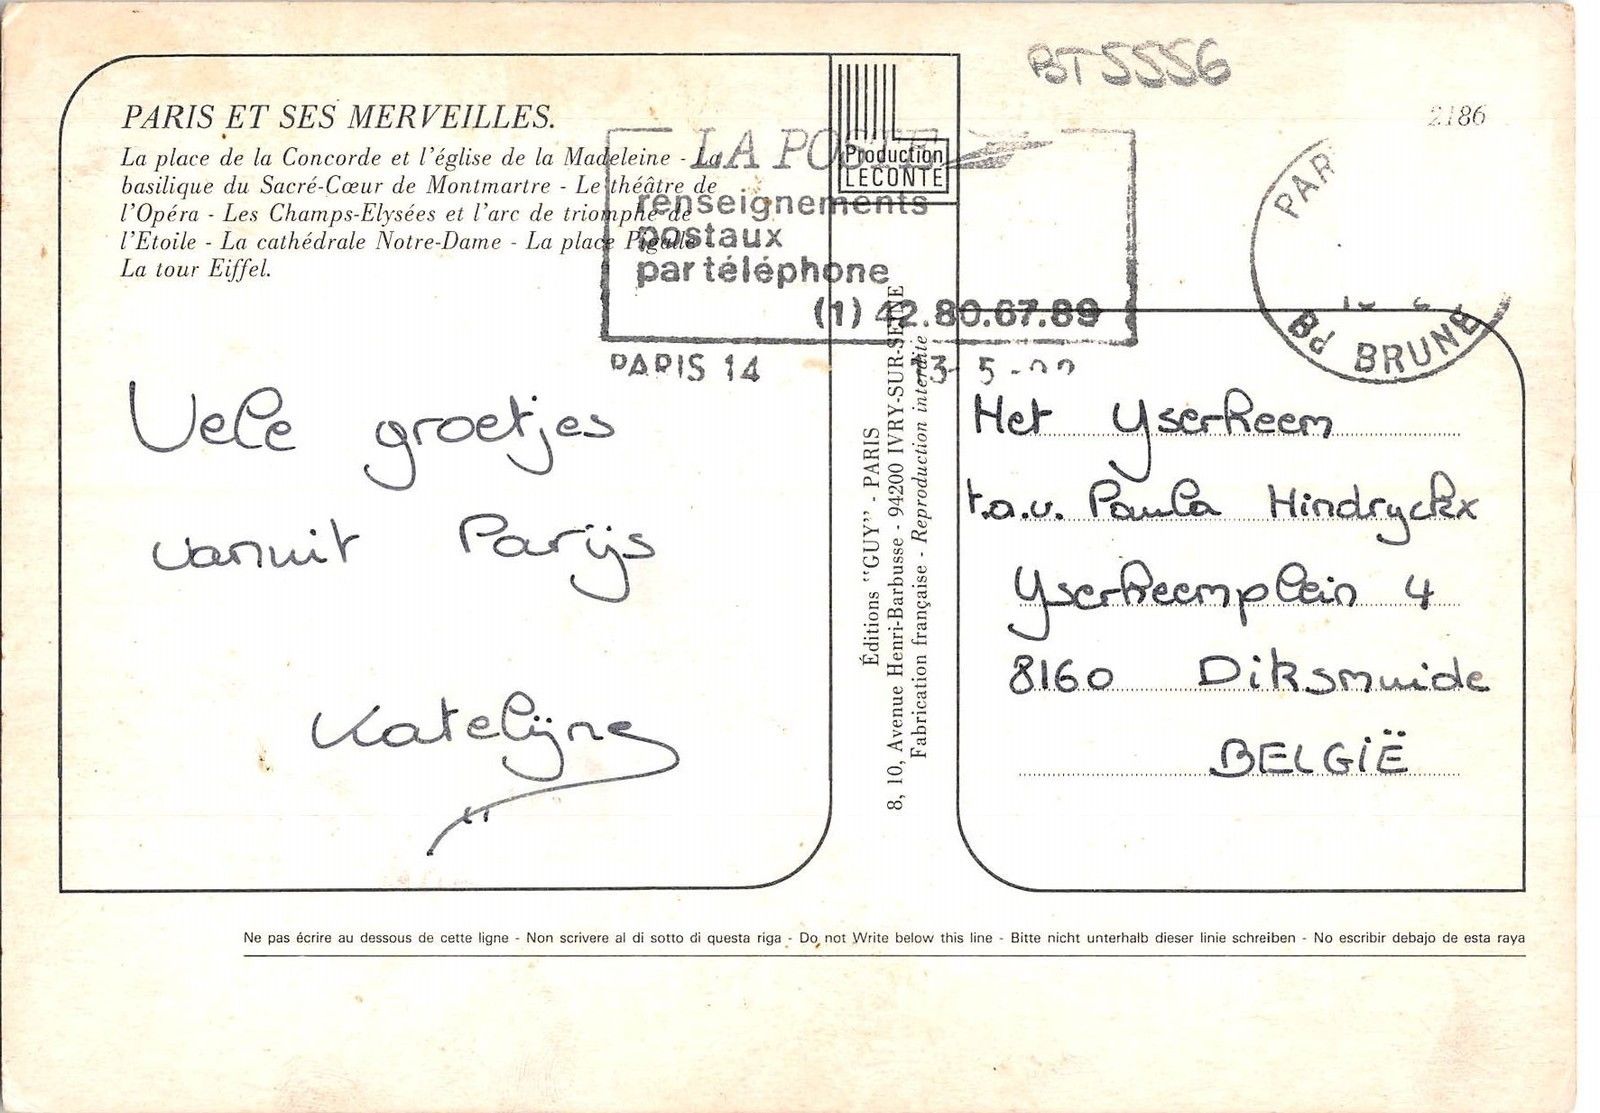 BT5556
2186
PARIS ET SES MERVEILLES.
La place de la Concorde et l'église de la Madeleine - La
basilique du Sacré-Cœur de Montmartre - Le théâtre de
l'Opéra - Les Champs-Elysées et l'arc de triomphe de
l'Etoile - La cathédrale Notre-Dame - La place Pigalle
La tour Eiffel.
Production
LECONTE
LA POSTE
renseignements
postaux
par téléphone
(1) 42.80.67.89
PARIS 14
PAR
Bd BRUNE
Vele groetjes
vanuit Parijs
Katelijne
Éditions "GUY" - PARIS
8, 10, Avenue Henri-Barbusse - 94200 IVRY-SUR-SEINE
Fabrication française - Reproduction interdite
Het Yserheem
t.a.v. Paula Hindryckx
Yserheemplein 4
8160 Diksmuide
BELGIË
Ne pas écrire au dessous de cette ligne - Non scrivere al di sotto di questa riga - Do not Write below this line - Bitte nicht unterhalb dieser linie schreiben - No escribir debajo de esta raya